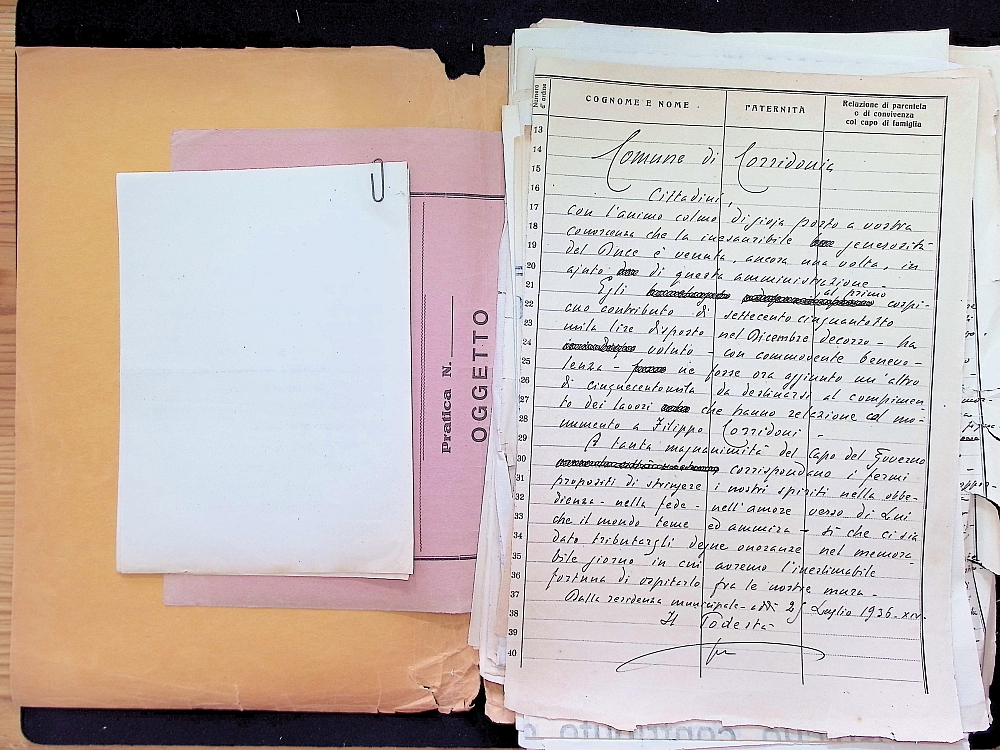 Pratica N.
OGGETTO
Numero d'ordine
COGNOME E NOME
PATERNITÀ
Relazione di parentela
o di convivenza
col capo di famiglia
13
14
15
16
17
18
19
20
21
22
23
24
25
26
27
28
29
30
31
32
33
34
35
36
37
38
39
40
Comune di Corridonia
Cittadini,
con l'animo colmo di gioja porto a vostra
conoscenza che la inesauribile generosità
del Duce è venuta, ancora una volta, in
ajuto di questa amministrazione.-
Egli al primo cospi-
cuo contributo di settecentocinquantotto
mila lire disposto nel Dicembre decorso - ha
voluto - con commovente benevo-
lenza - ne fosse ora aggiunto un'altro
di cinquecentomila da destinarsi al compimen-
to dei lavori che hanno relazione col mo-
numento a Filippo Corridoni.-
A tanta magnanimità del Capo del Governo
corrispondano i fermi
propositi di stringere i nostri spiriti nella obbe-
dienza - nella fede - nell'amore verso di Lui
che il mondo teme ed ammira - sì che ci sia
dato tributargli degne onoranze nel memora-
bile giorno in cui avremo l'inestimabile
fortuna di ospitarlo fra le nostre mura.-
Dalla residenza municipale - addì 25 Luglio 1936.XIV.
Il Podestà